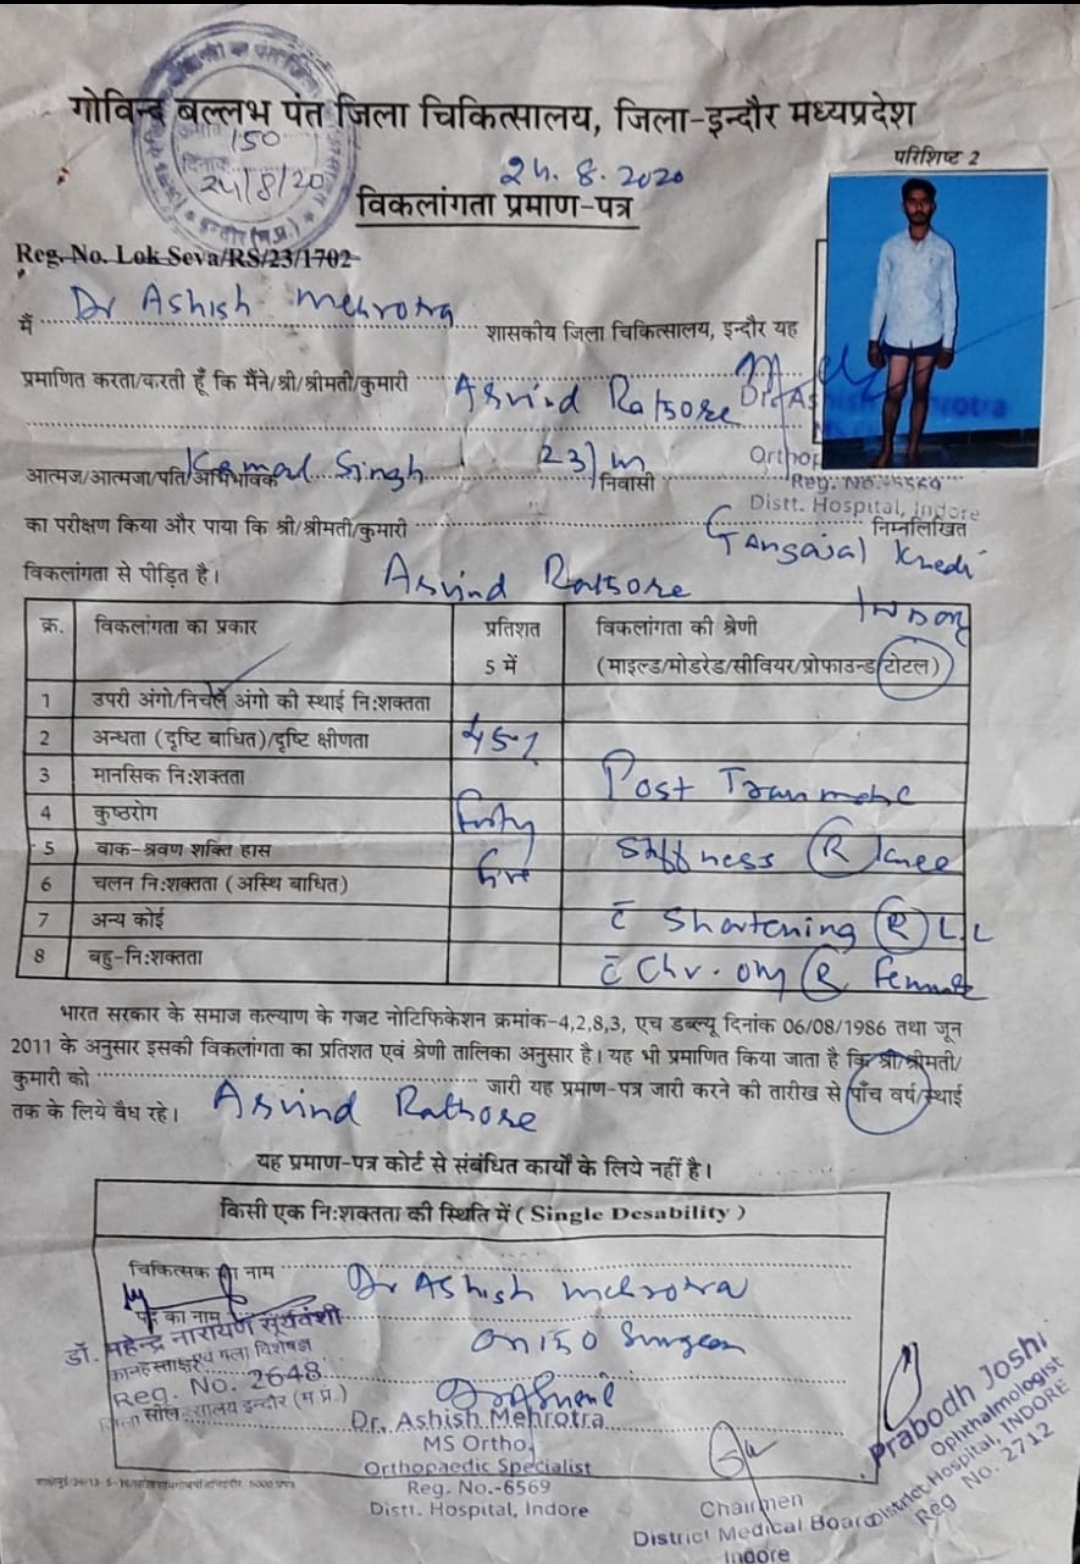 गोविन्द बल्लभ पंत जिला चिकित्सालय, जिला-इन्दौर मध्यप्रदेश
150
दिनांक
24/8/20
इन्दौर (म.प्र.)
24. 8. 2020
परिशिष्ट 2
विकलांगता प्रमाण-पत्र
Reg. No. Lok Seva/RS/23/1702
मैं Dr Ashish Mehrotra शासकीय जिला चिकित्सालय, इन्दौर यह
प्रमाणित करता/करती हूँ कि मैंने/श्री/श्रीमती/कुमारी Arvind Rathore
Reg. No.-6569
Distt. Hospital, Indore
आत्मज/आत्मजा/पति/अभिभावक Kamal Singh 23/m निवासी
Gangajal Khedi
Indore
का परीक्षण किया और पाया कि श्री/श्रीमती/कुमारी निम्नलिखित
विकलांगता से पीड़ित है। Arvind Rathore
क्र. विकलांगता का प्रकार प्रतिशत विकलांगता की श्रेणी
5 में (माइल्ड/मोडरेड/सीवियर/प्रोफाउन्ड/टोटल)
1 उपरी अंगो/निचले अंगो की स्थाई नि:शक्तता
2 अन्धता (दृष्टि बाधित)/दृष्टि क्षीणता 45%
3 मानसिक नि:शक्तता Post Traumatic
4 कुष्ठरोग Forty
5 वाक-श्रवण शक्ति हास Stiffness (R) knee
6 चलन नि:शक्तता (अस्थि बाधित) five
7 अन्य कोई c̄ Shortening (R) L.L
8 बहु-नि:शक्तता c̄ Chr. om (R) femur
भारत सरकार के समाज कल्याण के गजट नोटिफिकेशन क्रमांक-4,2,8,3, एच डब्ल्यू दिनांक 06/08/1986 तथा जून
2011 के अनुसार इसकी विकलांगता का प्रतिशत एवं श्रेणी तालिका अनुसार है। यह भी प्रमाणित किया जाता है कि श्री/श्रीमती/
कुमारी को Arvind Rathore जारी यह प्रमाण-पत्र जारी करने की तारीख से पाँच वर्ष/स्थाई
तक के लिये वैध रहे।
यह प्रमाण-पत्र कोर्ट से संबंधित कार्यों के लिये नहीं है।
किसी एक नि:शक्तता की स्थिति में ( Single Desability )
चिकित्सक का नाम Dr Ashish Mehrotra
पद का नाम Ortho Surgeon
डॉ. महेन्द्र नारायण सूर्यवंशी
हस्ताक्षर
Reg. No. 2648
Dr. Ashish Mehrotra
MS Ortho.
Orthopaedic Specialist
Reg. No.-6569
Distt. Hospital, Indore
Chairmen
District Medical Board
Indore
Prabodh Joshi
Ophthalmologist
District Hospital, INDORE
Reg No. 2712